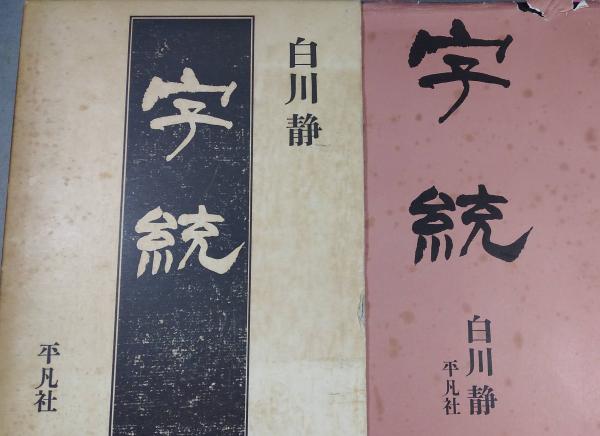 白川静
字統
平凡社
字統
白川静
平凡社